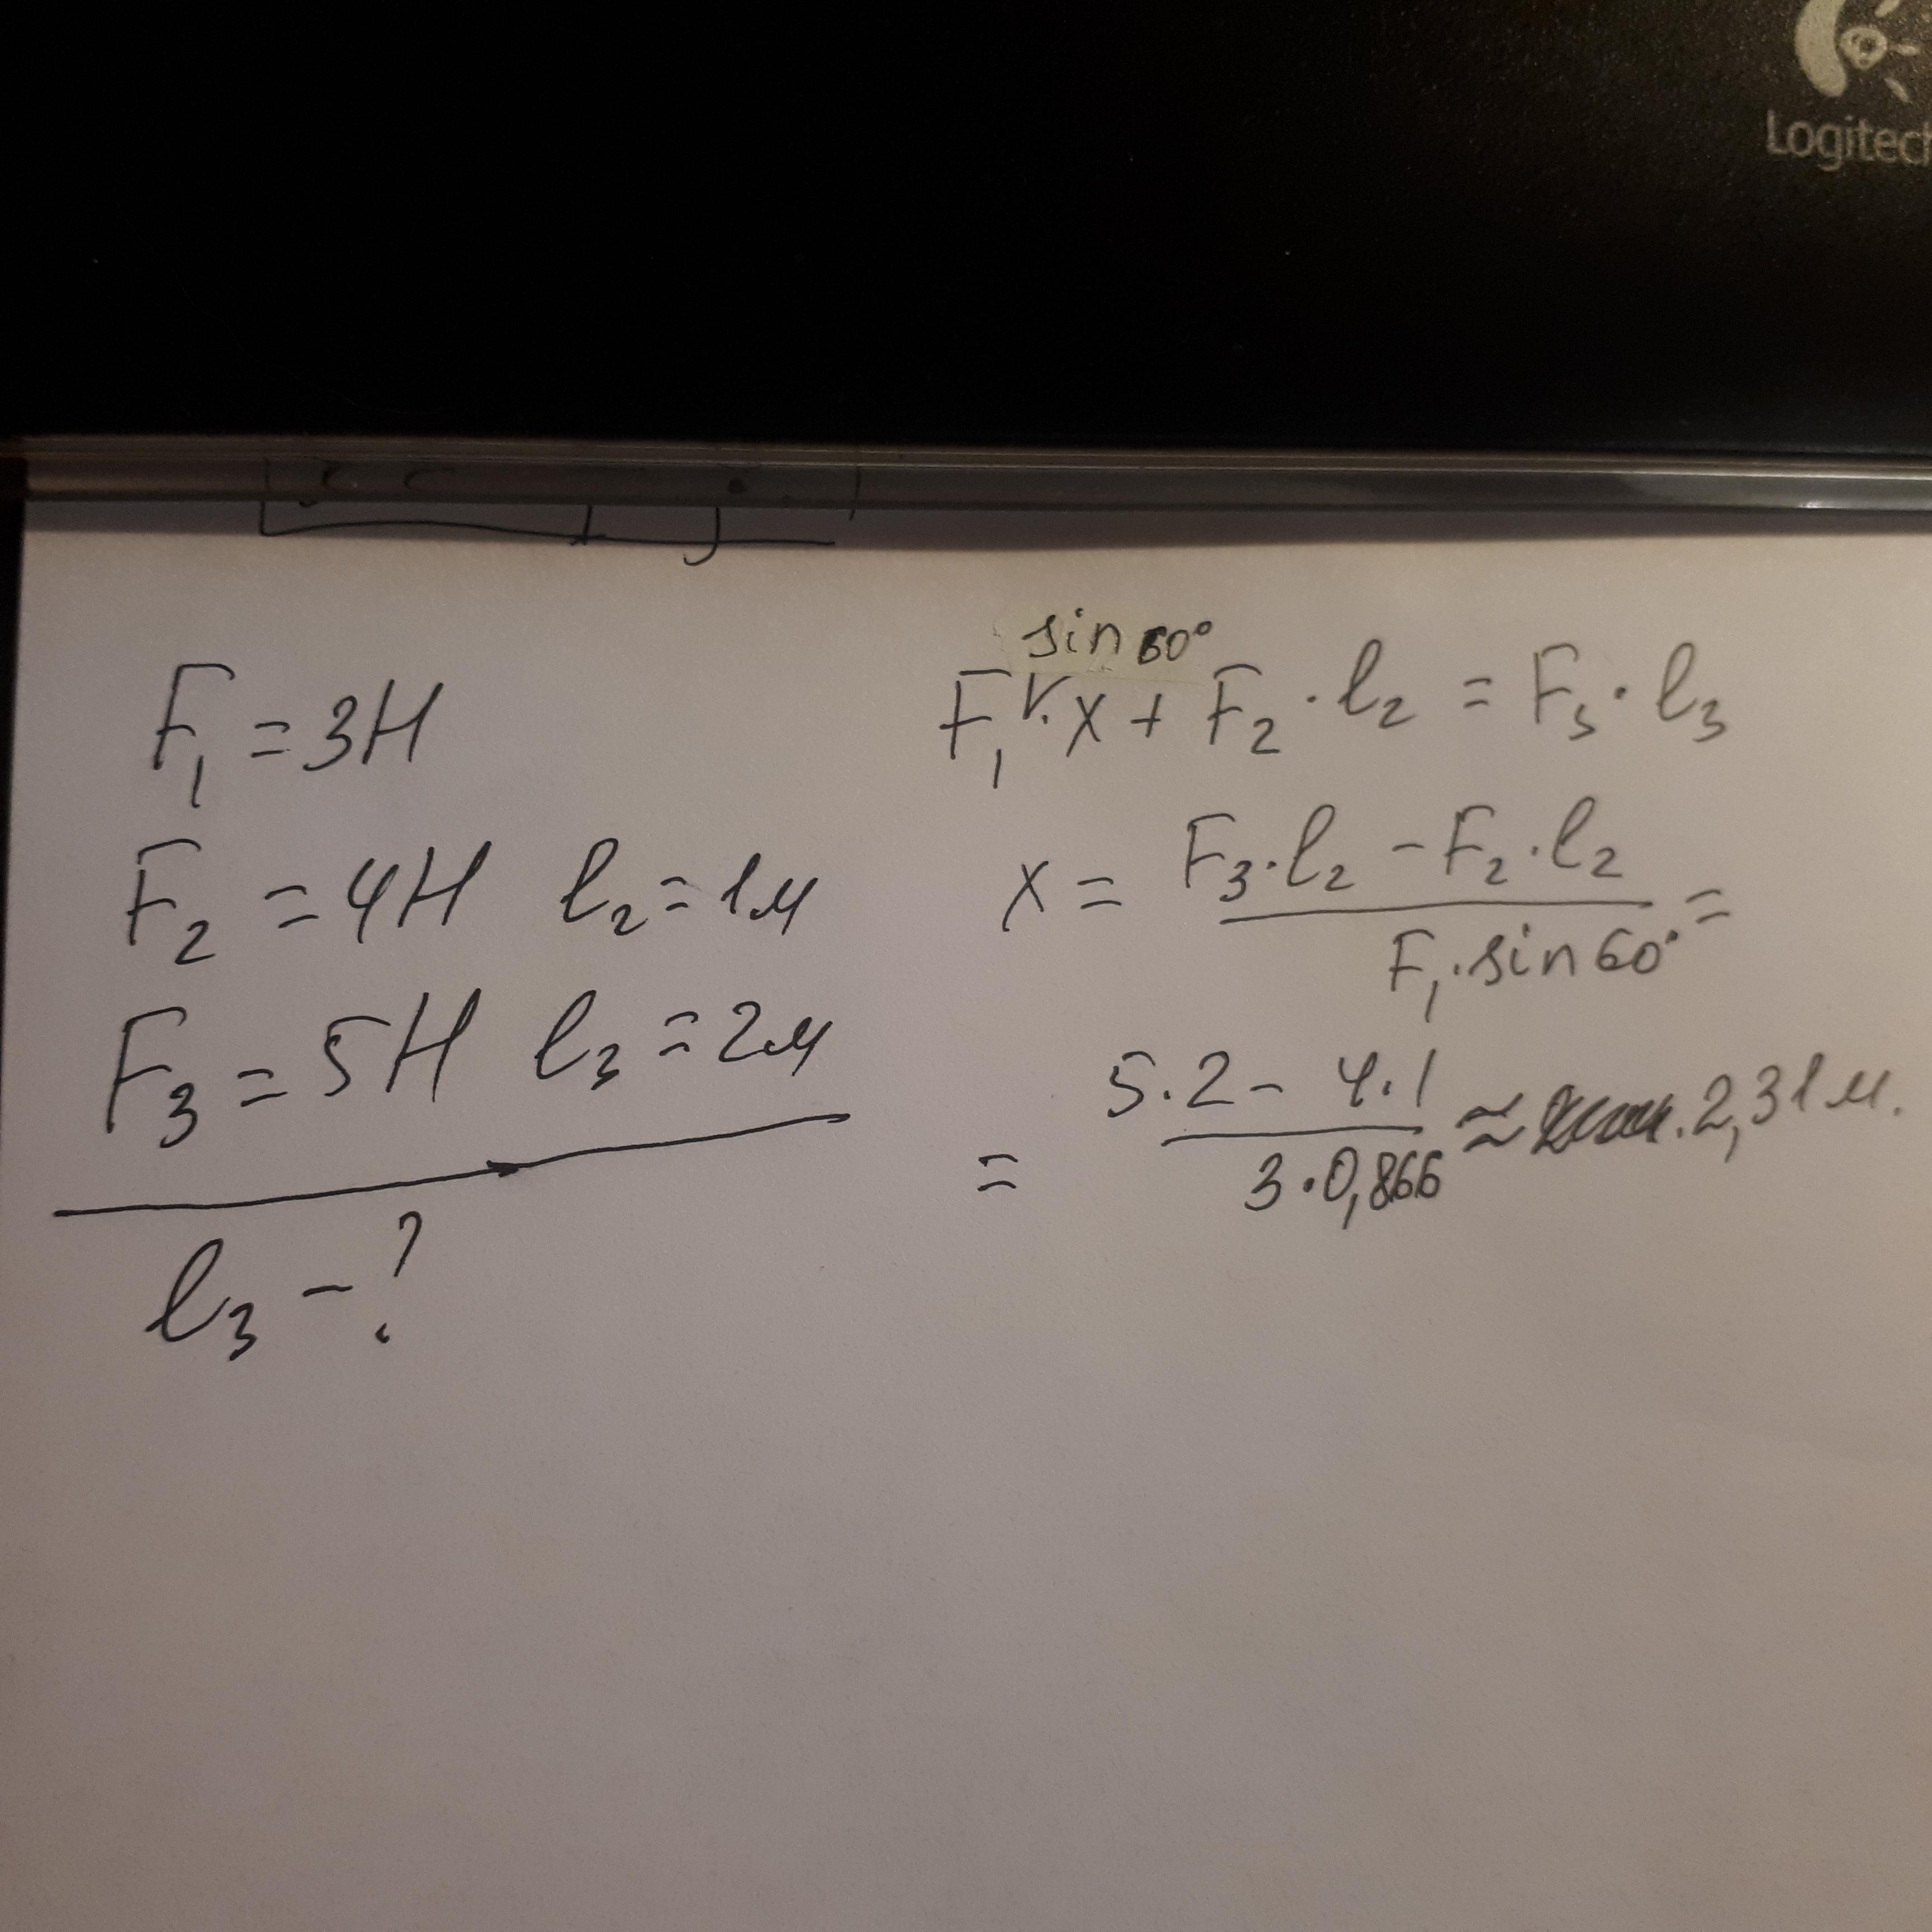 Logitech
F₁ = 3Н
F₂ = 4Н l₂ = 1м
F₃ = 5Н l₃ = 2м
l₃ - ?
sin 60°
F₁ · x + F₂ · l₂ = F₃ · l₃
x = (F₃ · l₂ - F₂ · l₂) / (F₁ · sin 60°) =
= (5 · 2 - 4 · 1) / (3 · 0,866) ≈ 2,31 м.